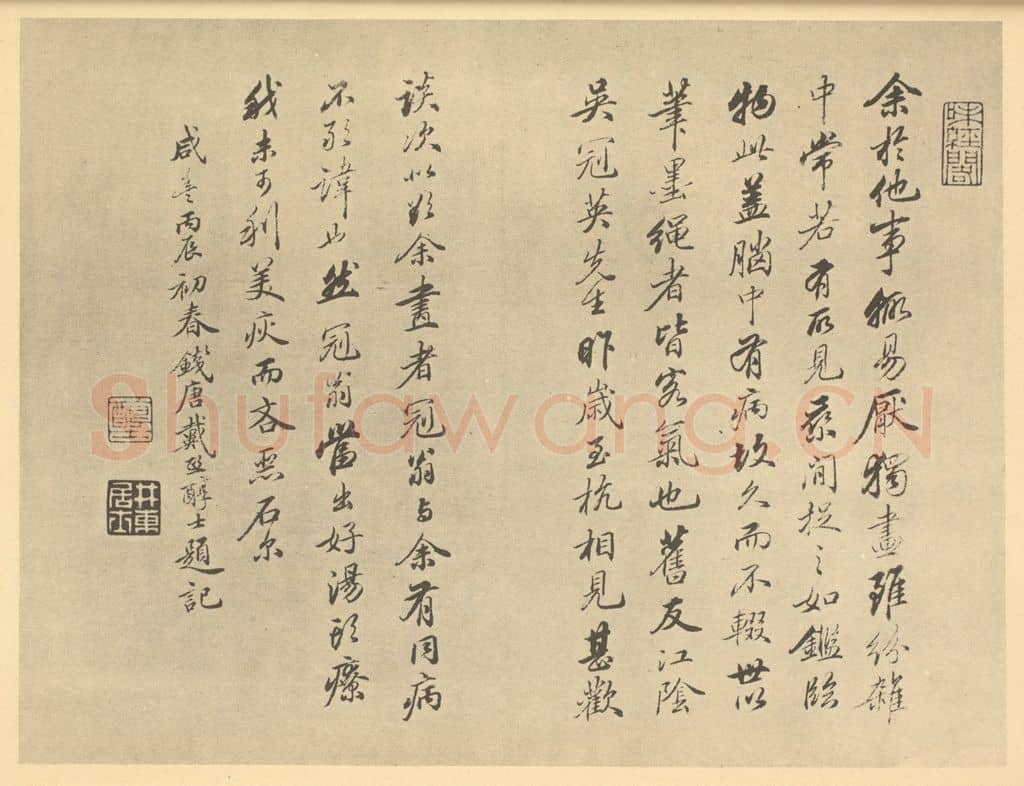 余於他事極易厭獨畫雖紛雜
中常若有所見最間捉之如鑑臨
物此蓋腦中有病故久而不輟世以
筆墨繩者皆客氣也舊友江陰
吳冠英先生昨歲至杭相見甚歡
談次以欵余畫者冠翁与余有同病
不敢諱也然冠翁當出好湯頭療
我未可利美疢而吝惡石尔
咸豐丙辰初春錢唐戴熙醇士題記
味經閣
醇士
井東居士
Shufawang.CN